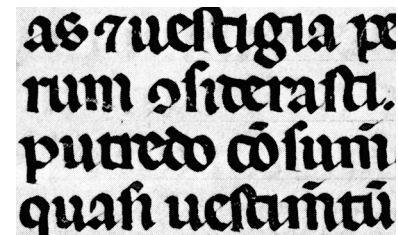 as ⁊ uestigia pe
rum ꝯsiderasti.
putredo cōsum̄
quasi uestim̄tū